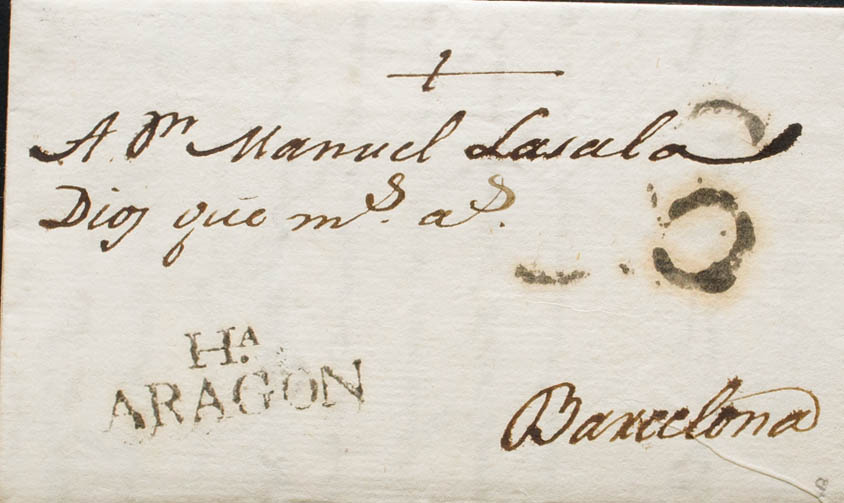 A Dn Manuel Lasala
Dios que ms. as.
H.A
ARAGON
Barcelona